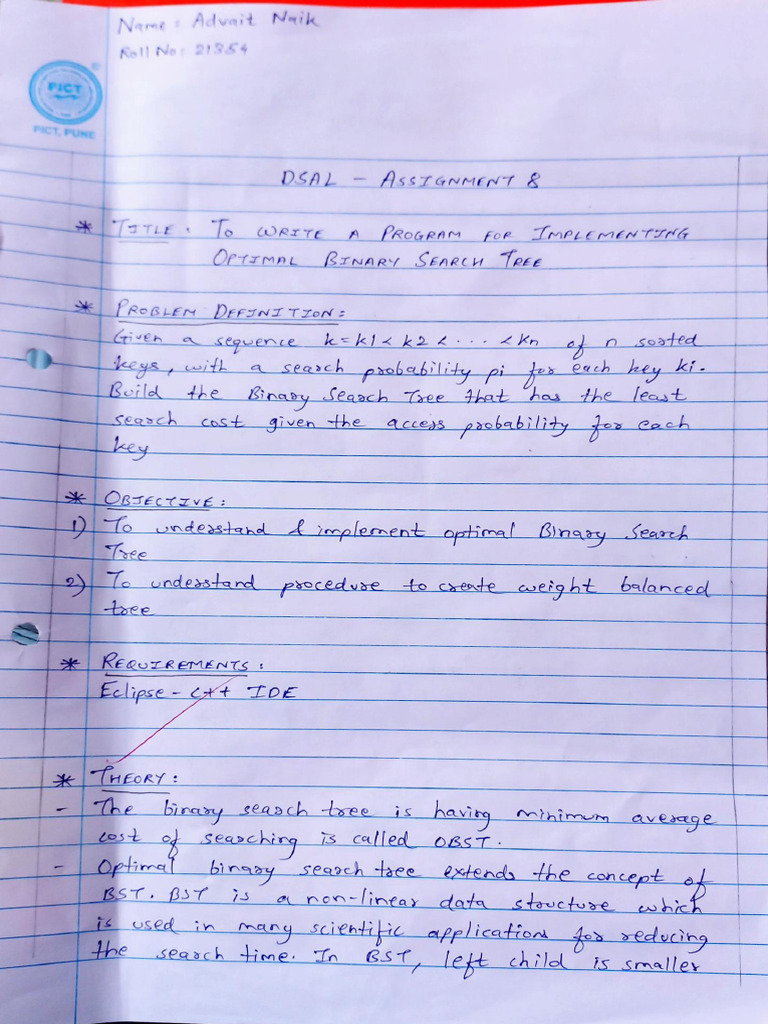 Name: Advait Naik
Roll No: 21354
PICT
PICT, PUNE
DSAL - ASSIGNMENT 8
* TITLE: TO WRITE A PROGRAM FOR IMPLEMENTING
OPTIMAL BINARY SEARCH TREE
* PROBLEM DEFINITION:
Given a sequence k=k1<k2<....<kn of n sorted
keys, with a search probability pi for each key ki.
Build the Binary Search Tree that has the least
search cost given the access probability for each
key
* OBJECTIVE:
1) To understand & implement optimal Binary Search
Tree
2) To understand procedure to create weight balanced
tree
* REQUIREMENTS:
Eclipse - C++ IDE
* THEORY:
- The binary search tree is having minimum average
cost of searching is called OBST.
- Optimal binary search tree extends the concept of
BST. BST is a non-linear data structure which
is used in many scientific applications for reducing
the search time. In BST, left child is smaller